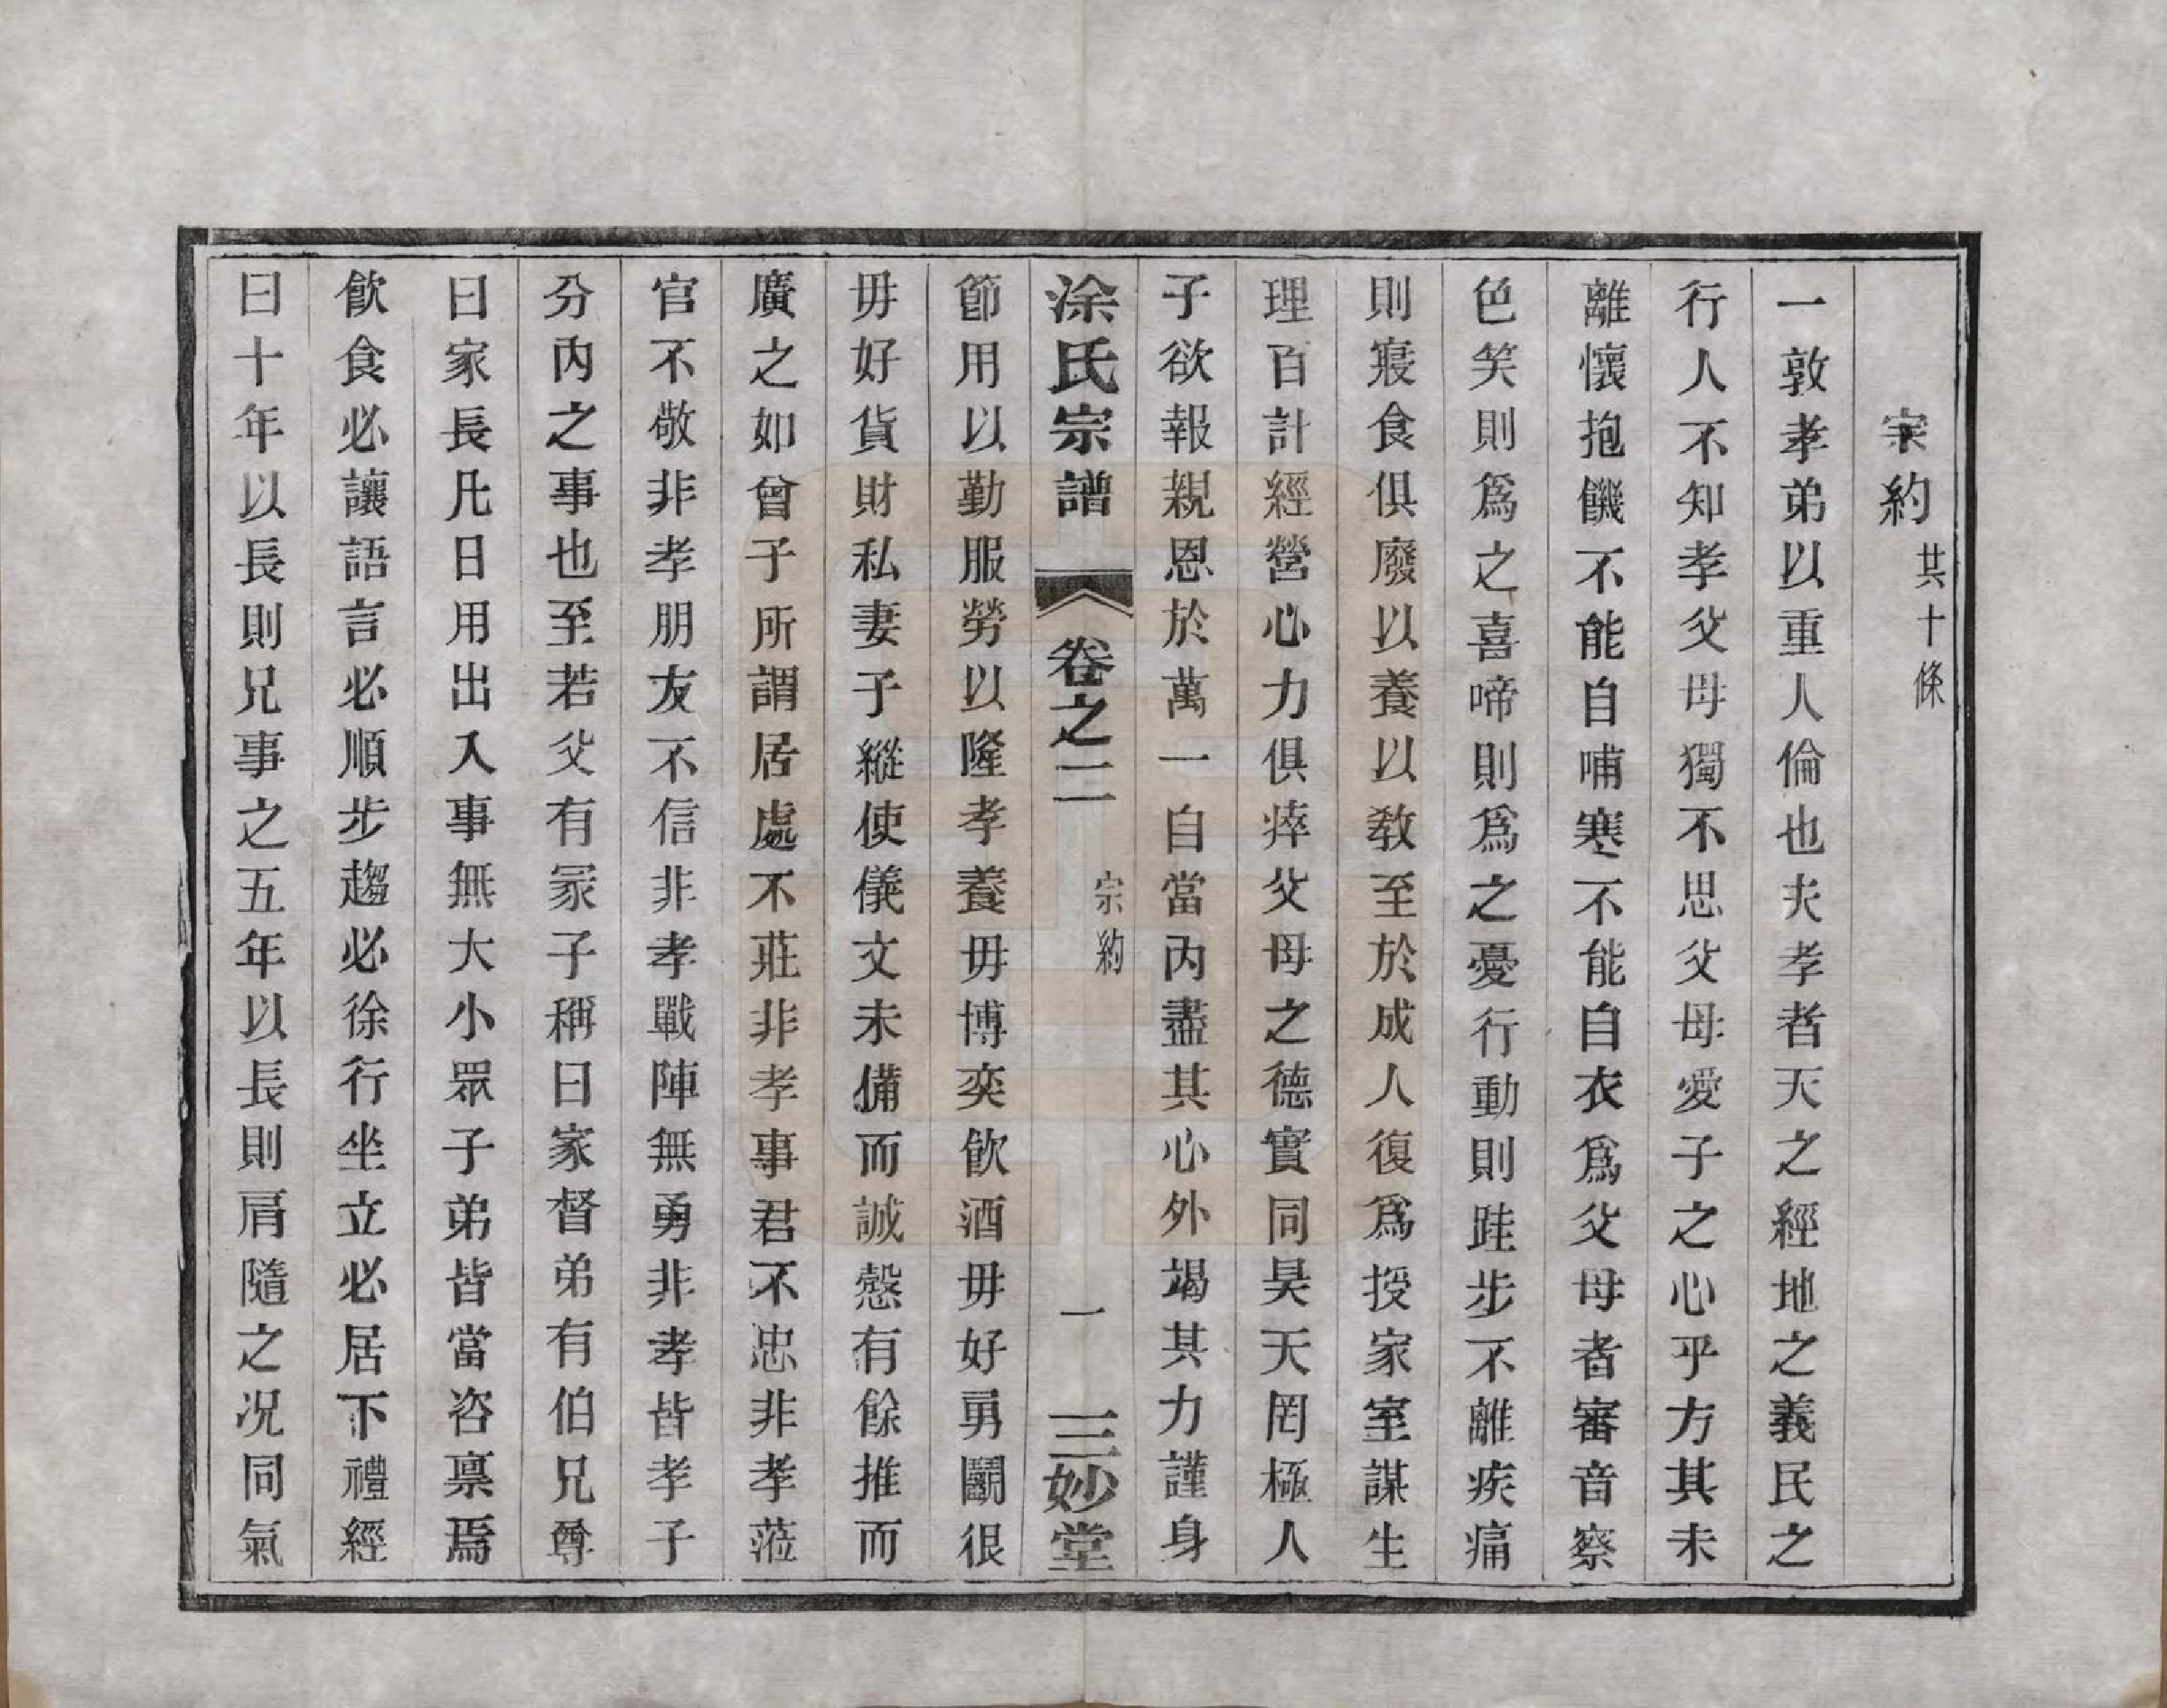 宗約共十條
一敦孝弟以重人倫也夫孝者天之經地之義民之
行人不知孝父母獨不思父母愛子之心乎方其未
離懷抱饑不能自哺寒不能自衣爲父母者審音察
色笑則爲之喜啼則爲之憂行動則跬步不離疾痛
則寢食俱廢以養以教至於成人復爲授家室謀生
理百計經營心力俱瘁父母之德實同昊天罔極人
子欲報親恩於萬一自當內盡其心外竭其力謹身
涂氏宗譜 卷之二 宗約 一 三妙堂
節用以勤服勞以隆孝養毋博奕飲酒毋好勇鬭很
毋好貨財私妻子縱使儀文未備而誠慤有餘推而
廣之如曾子所謂居處不莊非孝事君不忠非孝蒞
官不敬非孝朋友不信非孝戰陣無勇非孝皆孝子
分內之事也至若父有冢子稱曰家督弟有伯兄尊
曰家長凡日用出入事無大小眾子弟皆當咨禀焉
飲食必讓語言必順步趨必徐行坐立必居下禮經
曰十年以長則兄事之五年以長則肩隨之况同氣